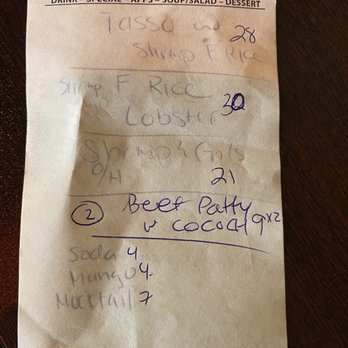 DRINK – SPECIAL – APPS – SOUP/SALAD – DESSERT
Tasso w 28
Shrimp F Rice
Shrimp F. Rice
Lobster 30
Shrimp n Grits
O/H 21
② Beef Patty
w cocoa 9x2
Soda 4
Mango 4
Mocktail 7